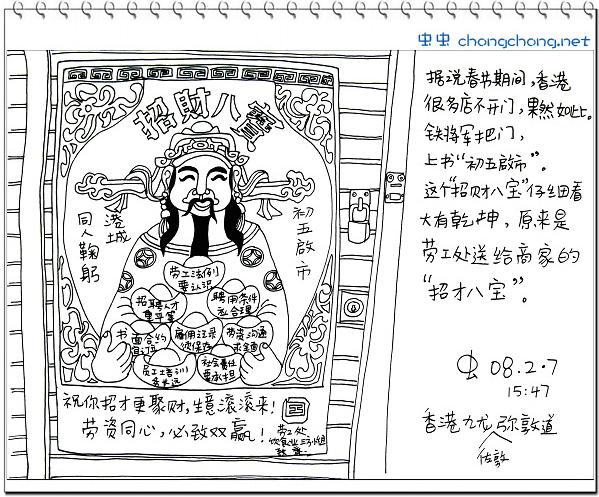 虫虫 chongchong.net
招財八寶
港城
同人鞠躬
初五啟市
劳工法例
要认识
招聘人才
重平等
聘用条件
必合理
书面合约
雇佣记录
须保存
劳资沟通
员工培训
社会责任
要承担
祝你招才更聚财,生意滚滚来!
劳资同心,必致双赢!
劳工处
饮食业三方小组
据说春节期间,香港
很多店不开门,果然如此。
铁将军把门,
上书“初五啟市”。
这个“招财八宝”仔细看
大有乾坤,原来是
劳工处送给商家的
“招才八宝”。
虫 08.2.7
15:47
香港九龙弥敦道
佐敦